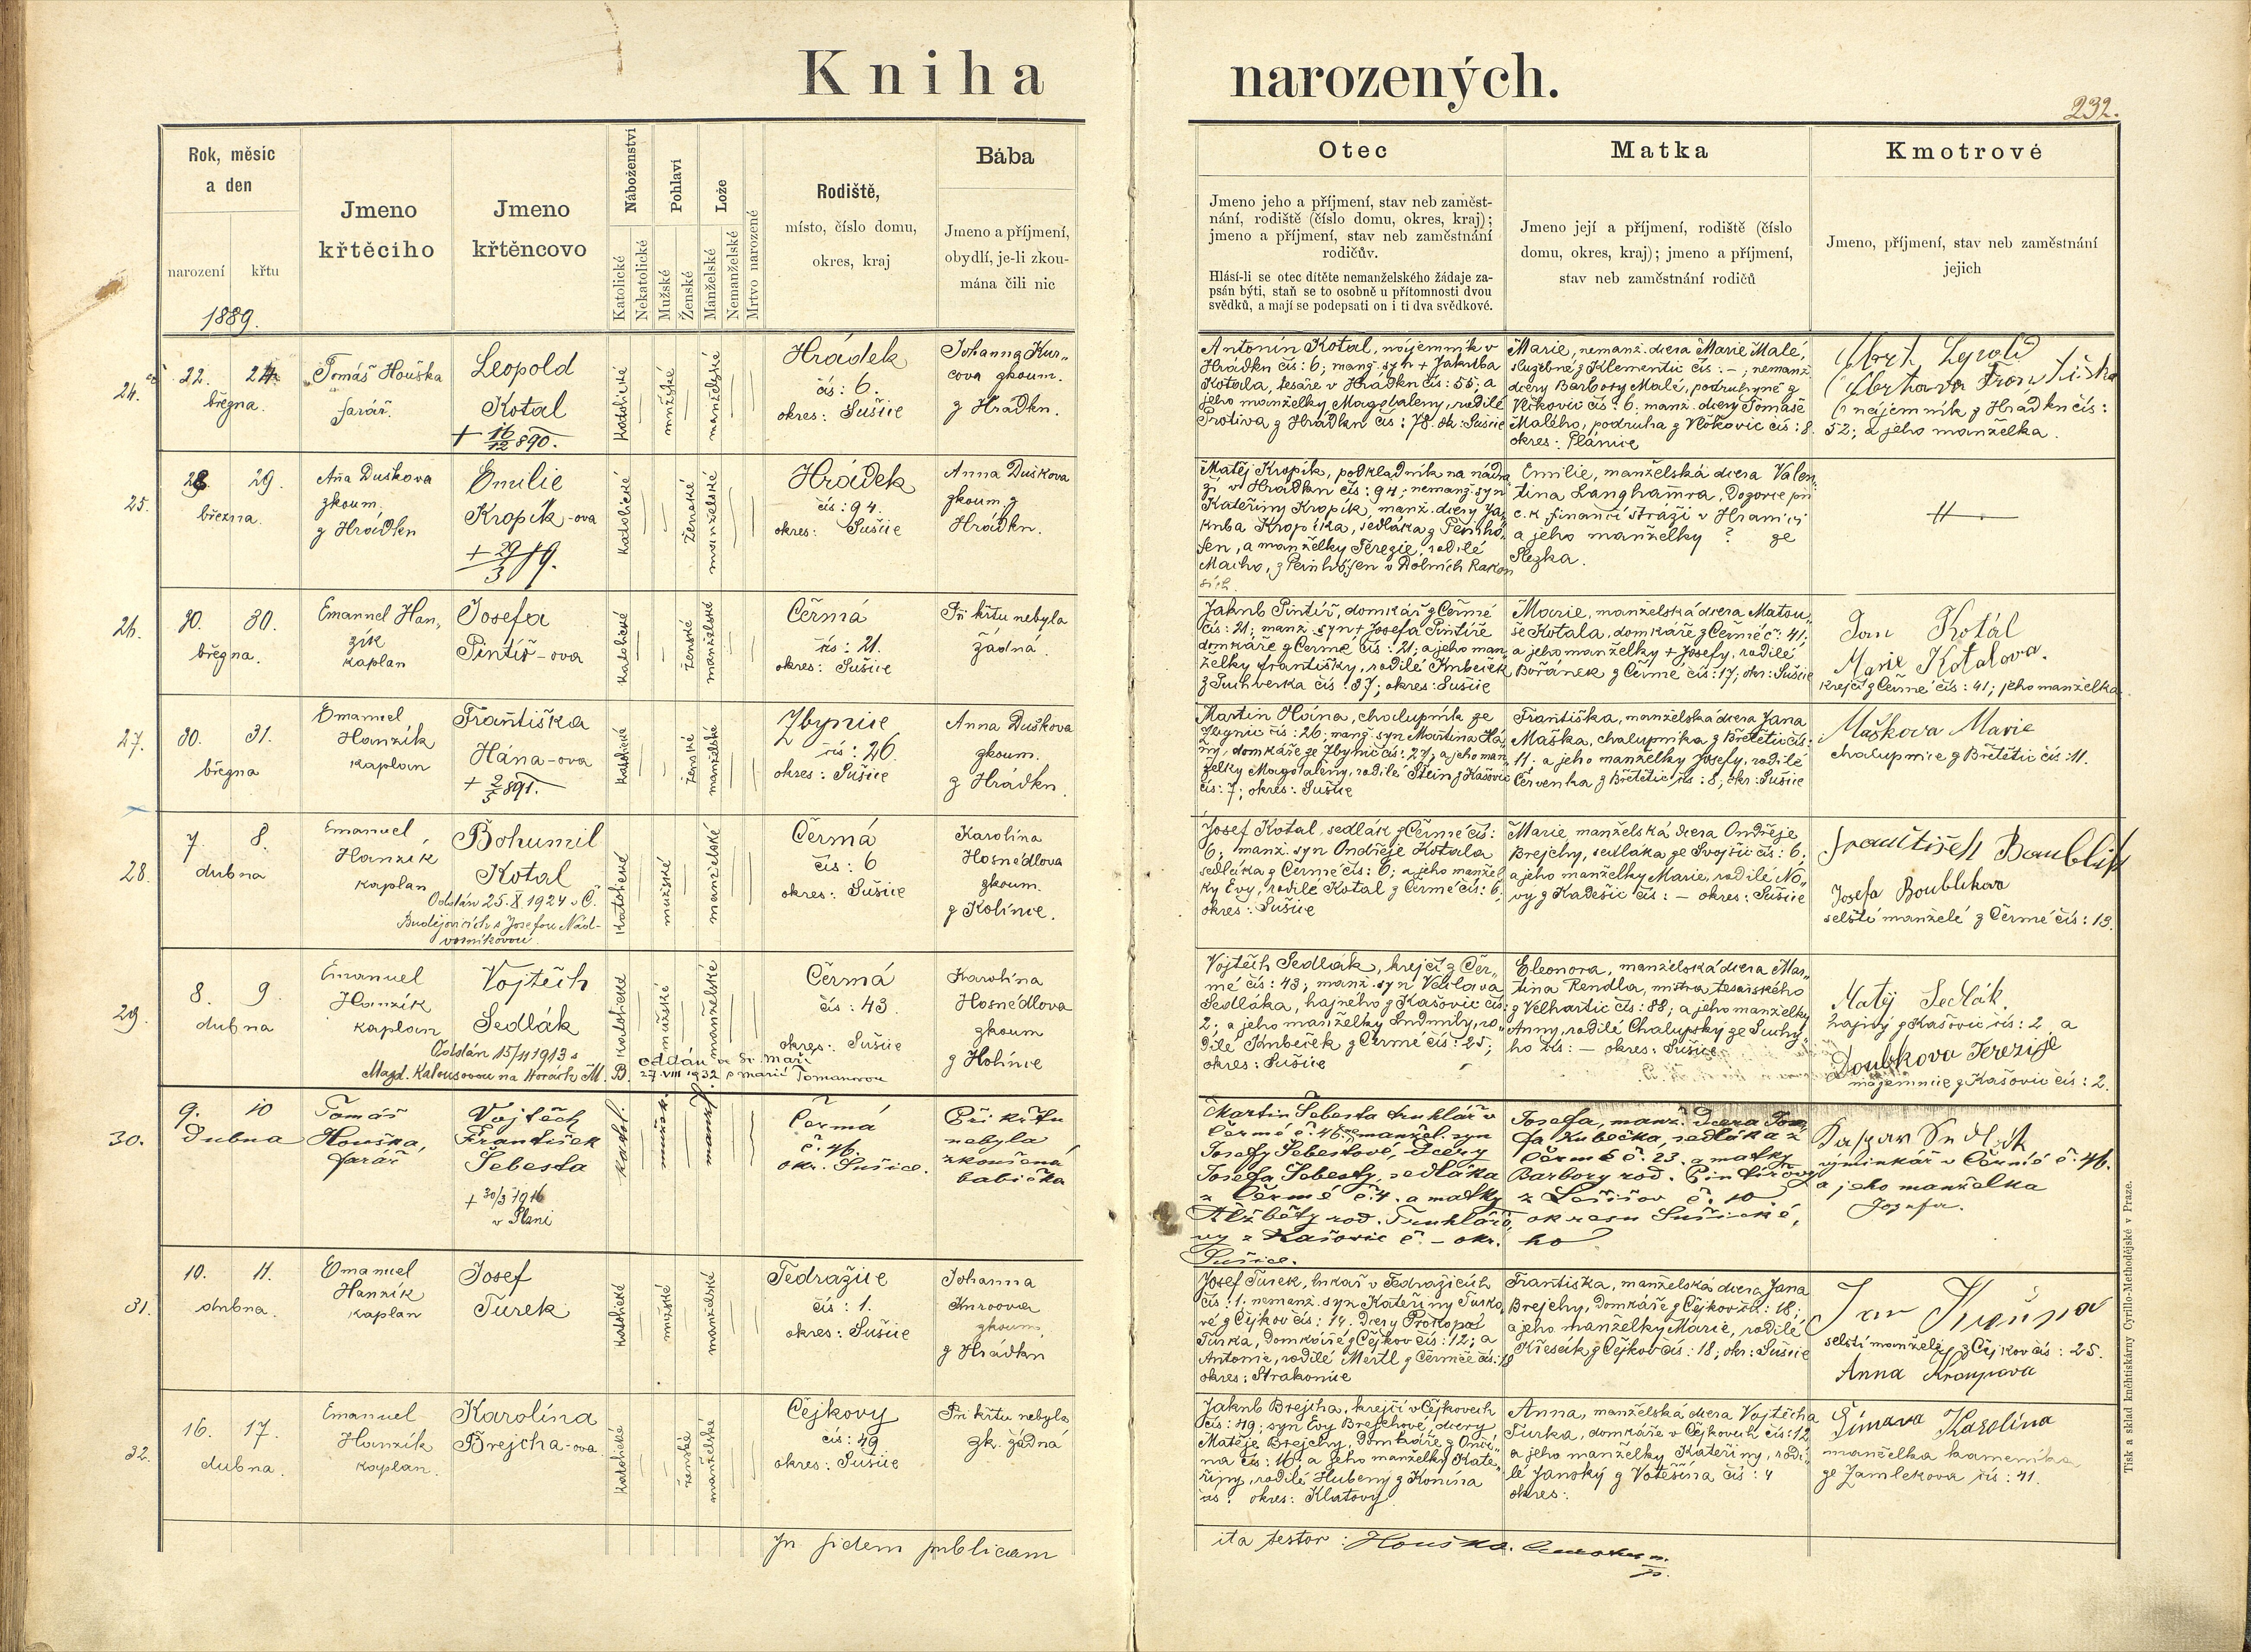 Kniha
narozených.
232.
Rok, měsíc
a den
narození
křtu
1889.
Jmeno
křtěcího
Jmeno
křtěncovo
Náboženství
Katolické
Nekatolické
Pohlaví
Mužské
Ženské
Lože
Manželské
Nemanželské
Mrtvo narozené
Rodiště,
místo, číslo domu,
okres, kraj
Bába
Jmeno a příjmení,
obydlí, je-li zkou-
mána čili nic
Otec
Jmeno jeho a příjmení, stav neb zaměst-
nání, rodiště (číslo domu, okres, kraj);
jmeno a příjmení, stav neb zaměstnání
rodičův.
Hlásí-li se otec dítěte nemanželského žádaje za-
psán býti, staň se to osobně u přítomnosti dvou
svědků, a mají se podepsati on i ti dva svědkové.
Matka
Jmeno její a příjmení, rodiště (číslo
domu, okres, kraj); jmeno a příjmení,
stav neb zaměstnání rodičů
Kmotrové
Jmeno, příjmení, stav neb zaměstnání
jejich
24.
22. 24.
března.
Tomáš Houška
farář.
Leopold
Kotal
+ 16/12 890.
katolické
mužské
manželské
Hrádek
čís: 6.
okres: Sušice
Johanna Kur-
cova zkoum.
z Hrádku.
Antonín Kotal, nájemník v
Hrádku čís: 6; manž. syn + Jakuba
Kotala, tesaře v Hrádku čís: 55; a
jeho manželky Magdaleny, rodilé
Protiva z Hrádku čís: 78. ok: Sušice
Marie, nemanž. dcera Marie Malé,
služebné z Klementic čís: -; nemanž.
dcery Barbory Malé, podruhyně z
Vlčkovic čís: 6. manž. dcery Tomáše
Malého, podruha z Vlčkovic čís: 8.
okres: Plánice
nájemník z Hrádku čís:
52; a jeho manželka.
25.
28. 29.
března.
Aña Duškova
zkoum,
z Hrádku
Emilie
Kropík-ova
+ 29/3 89.
katolické
ženské
manželské
Hrádek
čís: 94.
okres: Sušice
Anna Duškova
zkoum. z
Hrádku.
Matěj Kropík, podkladník na nádra
ží v Hrádku čís: 94; nemanž. syn
Kateřiny Kropík, manž. dcery Ja-
kuba Kropíka, sedláka z
a manželky Terezie, rodilé
Emilie, manželská dcera Valen-
tina Langhamra, Dozorce při
c.k. finanční stráži v Hranici
a jeho manželky ? ze
Slezka.
26.
30. 30.
března.
Emanuel Han-
zík
kaplan
Josefa
Pintíř-ova
katolické
ženské
manželské
Čermá
čís: 21.
okres: Sušice
Při křtu nebyla
žádná.
Jakub Pintíř, domkář z Čermé
čís: 21; manž. syn + Josefa Pintíře
domkáře z Čermé čís: 21; a jeho man-
želky Františky, rodilé Kubeček
z Suhverka čís: 37; okres: Sušice
Marie, manželská dcera Matou-
še Kotala, domkáře z Čermé č: 41;
a jeho manželky + Josefy, rodilé
Bořánek z Čermé čís: 17; okr: Sušice
Jan Kotál
Marie Kotalova.
krejčí z Čermé čís: 41; jeho manželka
27.
30. 31.
března
Emanuel
Hanzík
kaplan
Františka
Hána-ova
+ 2/5 891.
katolické
ženské
manželské
Zbynice
čís: 26.
okres: Sušice
Anna Duškova
zkoum.
z Hrádku.
Martin Hána, chalupník ze
Zbynic čís: 26; manž. syn Martina Há-
ny, domkáře ze Zbynic čís: 27; a jeho man-
želky Magdaleny, rodilé Štein z Kašovic
čís: 7; okres: Sušice
Františka, manželská dcera Jana
Maška, chalupníka z Břetětic čís:
11; a jeho manželky Josefy, rodilé
Červenka z Břetětic čís: 8, okr: Sušice
Maškova Marie
chalupnice z Břetětic čís: 11.
28.
7. 8.
dubna
Emanuel
Hanzík
kaplan
Bohumil
Kotal
Oddán 25.X.1924 v Č.
Budějovicích s Josefou Nád-
vorníkovou
katolické
mužské
manželské
Čermá
čís: 6
okres: Sušice
Karolína
Hosnedlova
zkoum.
z Kolínce.
Josef Kotal, sedlák z Čermé čís:
6; manž. syn Ondřeje Kotala
sedláka z Čermé čís: 6; a jeho manžel-
ky Evy, rodilé Kotal z Čermé čís: 6;
okres: Sušice
Marie, manželská dcera Ondřeje
Brejchy, sedláka ze Svojšic čís: 6;
a jeho manželky Marie, rodilé No-
vý z Kadešic čís: - okres: Sušice
František Boublík
Josefa Boublikova
selští manželé z Čermé čís: 13.
29.
8. 9.
dubna
Emanuel
Hanzík
kaplan
Vojtěch
Sedlák
Oddán 15/11 1913 s
Magd. Kalousovou na Horách M. B.
oddán ve Sv. Maří
27.VIII 1932 s Marií Tomanovou
katolické
mužské
manželské
Čermá
čís: 43
okres: Sušice
Karolína
Hosnedlova
zkoum
z Kolínce
Vojtěch Sedlák, krejčí z Čer-
mé čís: 43; manž. syn Václava
Sedláka, hajného z Kašovic čís:
2; a jeho manželky Ludmily, ro-
dilé Kubeček z Čermé čís: 25;
okres: Sušice
Eleonora, manželská dcera Mar-
tina Rendla, mistra tesařského
z Velhartic čís: 88; a jeho manželky
Anny, rodilé Chalupský ze Suchý-
ho čís: - okres: Sušice
Matěj Sedlák.
hajný z Kašovic čís: 2 a
Doubkova Terezije
nájemnice z Kašovic čís: 2.
30.
9. 10
Dubna
Tomáš
Houška,
farář
Vojtěch
František
Šebesta
+ 30/3 1916
v Plani
katol.
mužsk.
manž.
Čermá
č. 46.
okr. Sušice.
Při křtu
nebyla
zkoušená
babička
Martin Šebesta truhlář v
Čermé č. 46. nemanžel. syn
Josefy Šebestové, dcery
Josefa Šebesty, sedláka
z Čermé č. 4. a matky
Alžběty rod. Truhlářo-
vy z Kašovic č. - okr.
Sušice.
Josefa, manž. dcera Jose
fa Kubečka, sedláka z
Čermé č. 23. a matky
Barbory rod. Pintířovy
z Lešišov č. 10
okresu Sušické-
ho
Kašpar Sedlák
výminkář v Čermé č. 46.
a jeho manželka
Josefa.
31.
10. 11.
dubna.
Emanuel
Hanzík
kaplan
Josef
Turek
katolické
mužské
manželské
Tedražice
čís: 1.
okres: Sušice
Johanna
Kurcova
zkoum,
z Hrádku
Josef Turek, lukař v Tedražicích
čís: 1; nemanž. syn Kateřiny Turko-
vé z Čejkov čís: 14. dcery Prokopa
Turka, domkáře z Čejkov čís: 12; a
Antonie, rodilé Mertl z Čermče čís: 18
okres: Strakonice
Františka, manželská dcera Jana
Brejchy, domkáře z Čejkov čís: 18;
a jeho manželky Marie, rodilé
Křesák z Čejkov čís: 18; okr: Sušice
Jan Kroupa
selští manželé, z Čejkov čís: 25.
Anna Kroupova
32.
16. 17.
dubna.
Emanuel
Hanzík
kaplan.
Karolína
Brejcha-ova
katolické
ženské
manželské
Čejkovy
čís: 49
okres: Sušice
Při křtu nebyla
zk. žádná
Jakub Brejcha, krejčí v Čejkovech
čís: 49; syn Evy Brejchové, dcery
Matěje Brejchy, domkáře z
čís: 16; a jeho manželky Kate-
řiny, rodilé Hubený z Konína
čís: okres: Klatovy
Anna, manželská dcera Vojtěcha
Turka, domkáře v Čejkovech čís: 12
a jeho manželky Kateřiny, rodi-
lé Janský z Votěšína čís: 4
okres:
Šímava Karolína
manželka kameníka
ze Zamlekova čís: 41.
In fidem publicam
ita testor: Houška.
Tisk a sklad kněhtiskárny Cyrillo-Methodějské v Praze.